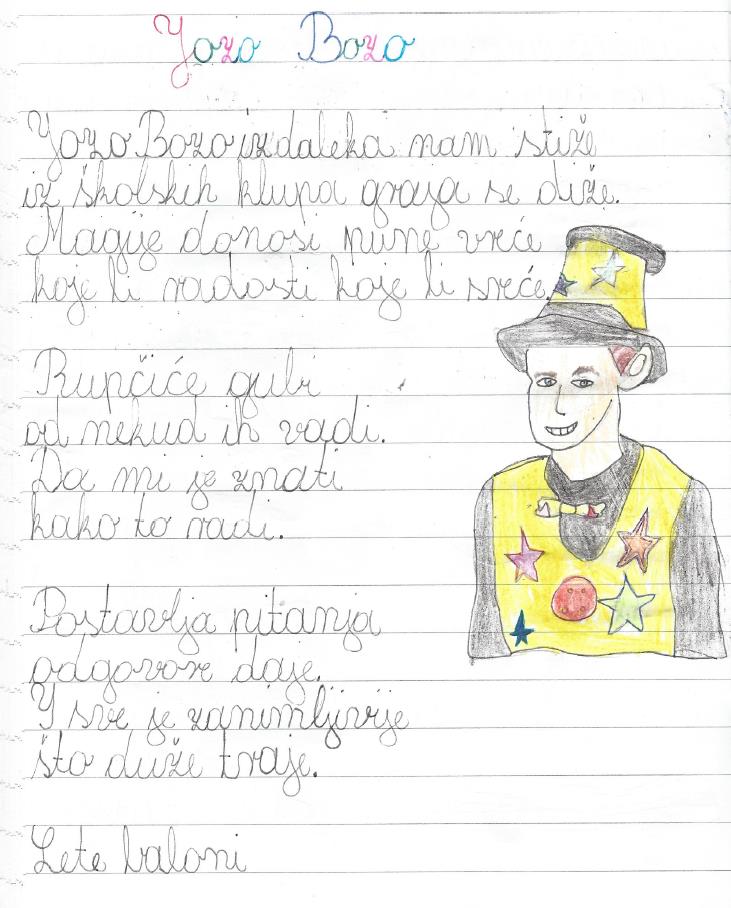 Jozo Bozo
Jozo Bozo izdaleka nam stiže
iz školskih klupa graja se diže.
Magije donosi pune vreće
koje li radosti koje li sreće.
Rupčiće gubi
od nekud ih vadi.
Da mi je znati
kako to radi.
Postavlja pitanja
odgovore daje.
I sve je zanimljivije
što duže traje.
Lete baloni